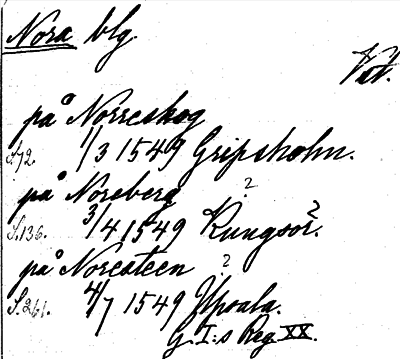 Nora blg.
Vst.
på Norreskog
S.72. 1/3 1549 Gripsholm.
på Noreberg ?
S.136. 3/4 1549 Kungsör ?.
på Noresteen ?
S.261. 4/7 1549 Upsala.
G. I:s Reg. XX.